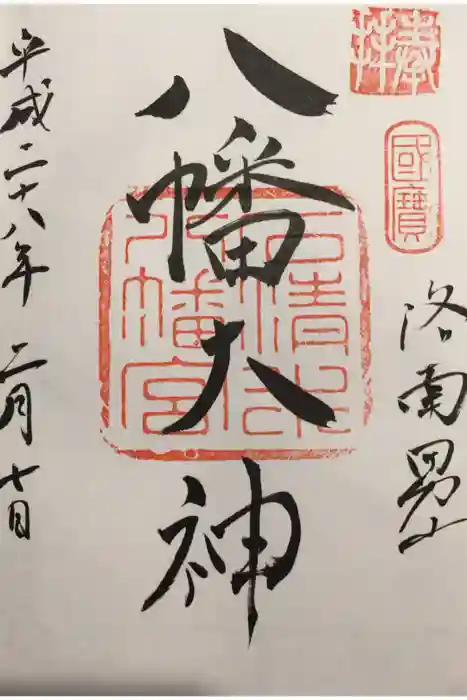 奉拝
國寶
洛南男山
八幡大神
石清水
八幡宮
平成二十八年 二月七日